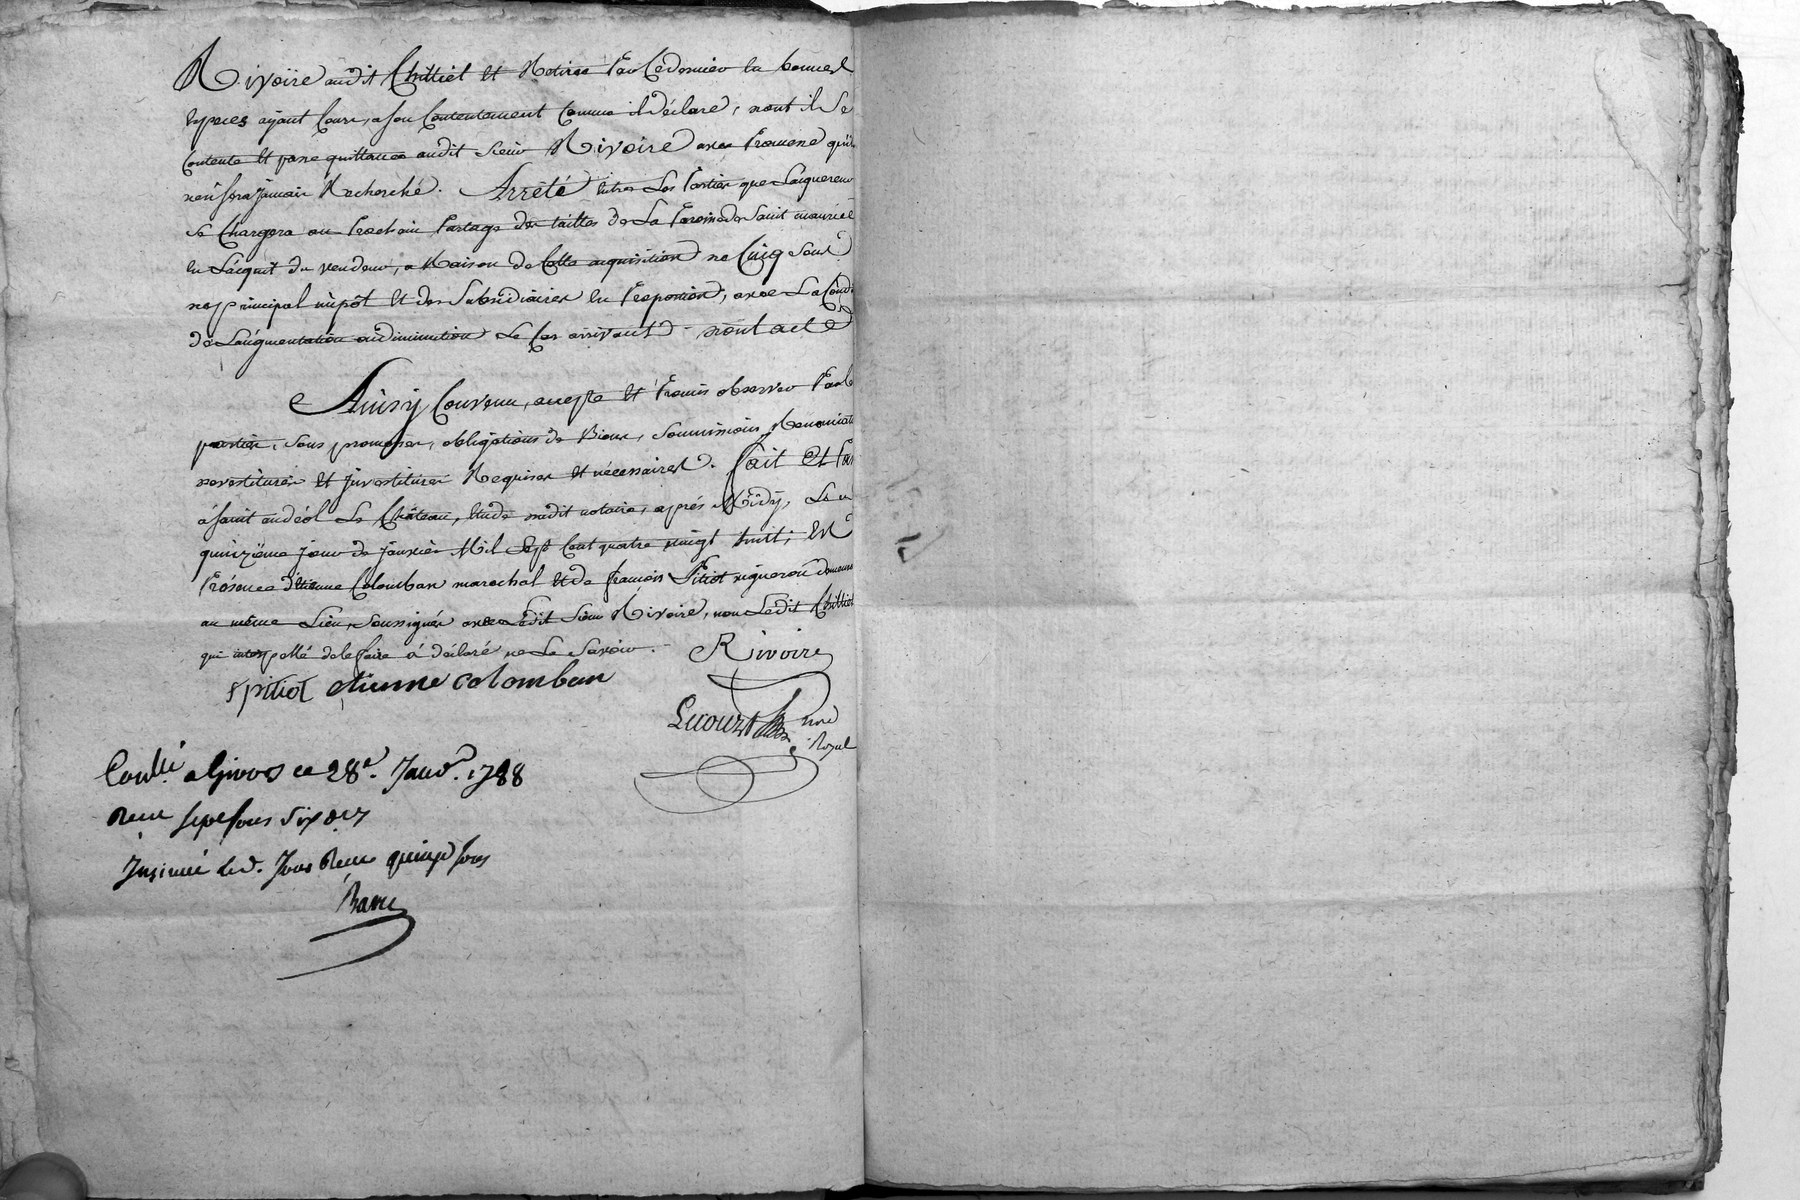 Rivoire audit Chilliet et Retirée Par Cedernier en bonnes
Especes ayant Cours, a son Contentement Comme il déclare, dont il Se
Contente et passe quittance audit Sieur Rivoire avec Promesse qu'il
n'en sera jamais Recherché. Arrêté Entre Les Parties que L'acquereur
se Chargera au Prochain Partage des tailles de La Paroisse de Saint maurice
En L'acquit du vendeur, a Raison de Cette acquisition de Cinq Sous
de principal impôt Et des Subsidiaires En Proportion, avec La Condi
de L'augmentation ou diminution Le Cas arrivant - dont acte
Ainsy Convenu, accepté Et Promis observer Par les
parties, sous promesses, obligations de Biens, Soumissions, Renonciati
devestitures Et investitures Requises et nécessaires. fait Et Passé
á saint andéol Le Château, Etude dudit notaire, aprés Midy, Le
quinziéme jour de janvier Mil Sept Cent quatre vingt huit, En
Présence d'Etienne Colomban marechal et de françois Pitiot vigneron demeurant
au même Lieu, Soussignés avec Ledit Sieur Rivoire, non Ledit Chilliet
qui interpellé de le faire á déclaré ne Le Savoir. Rivoire
f pitiot etienne colomban
Lecourt nre
Royal
Conlé. a Givors ce 28e. Janvr. 1788
Reçu sept sous six drs
Insinué led. Jour Reçu quinze sous